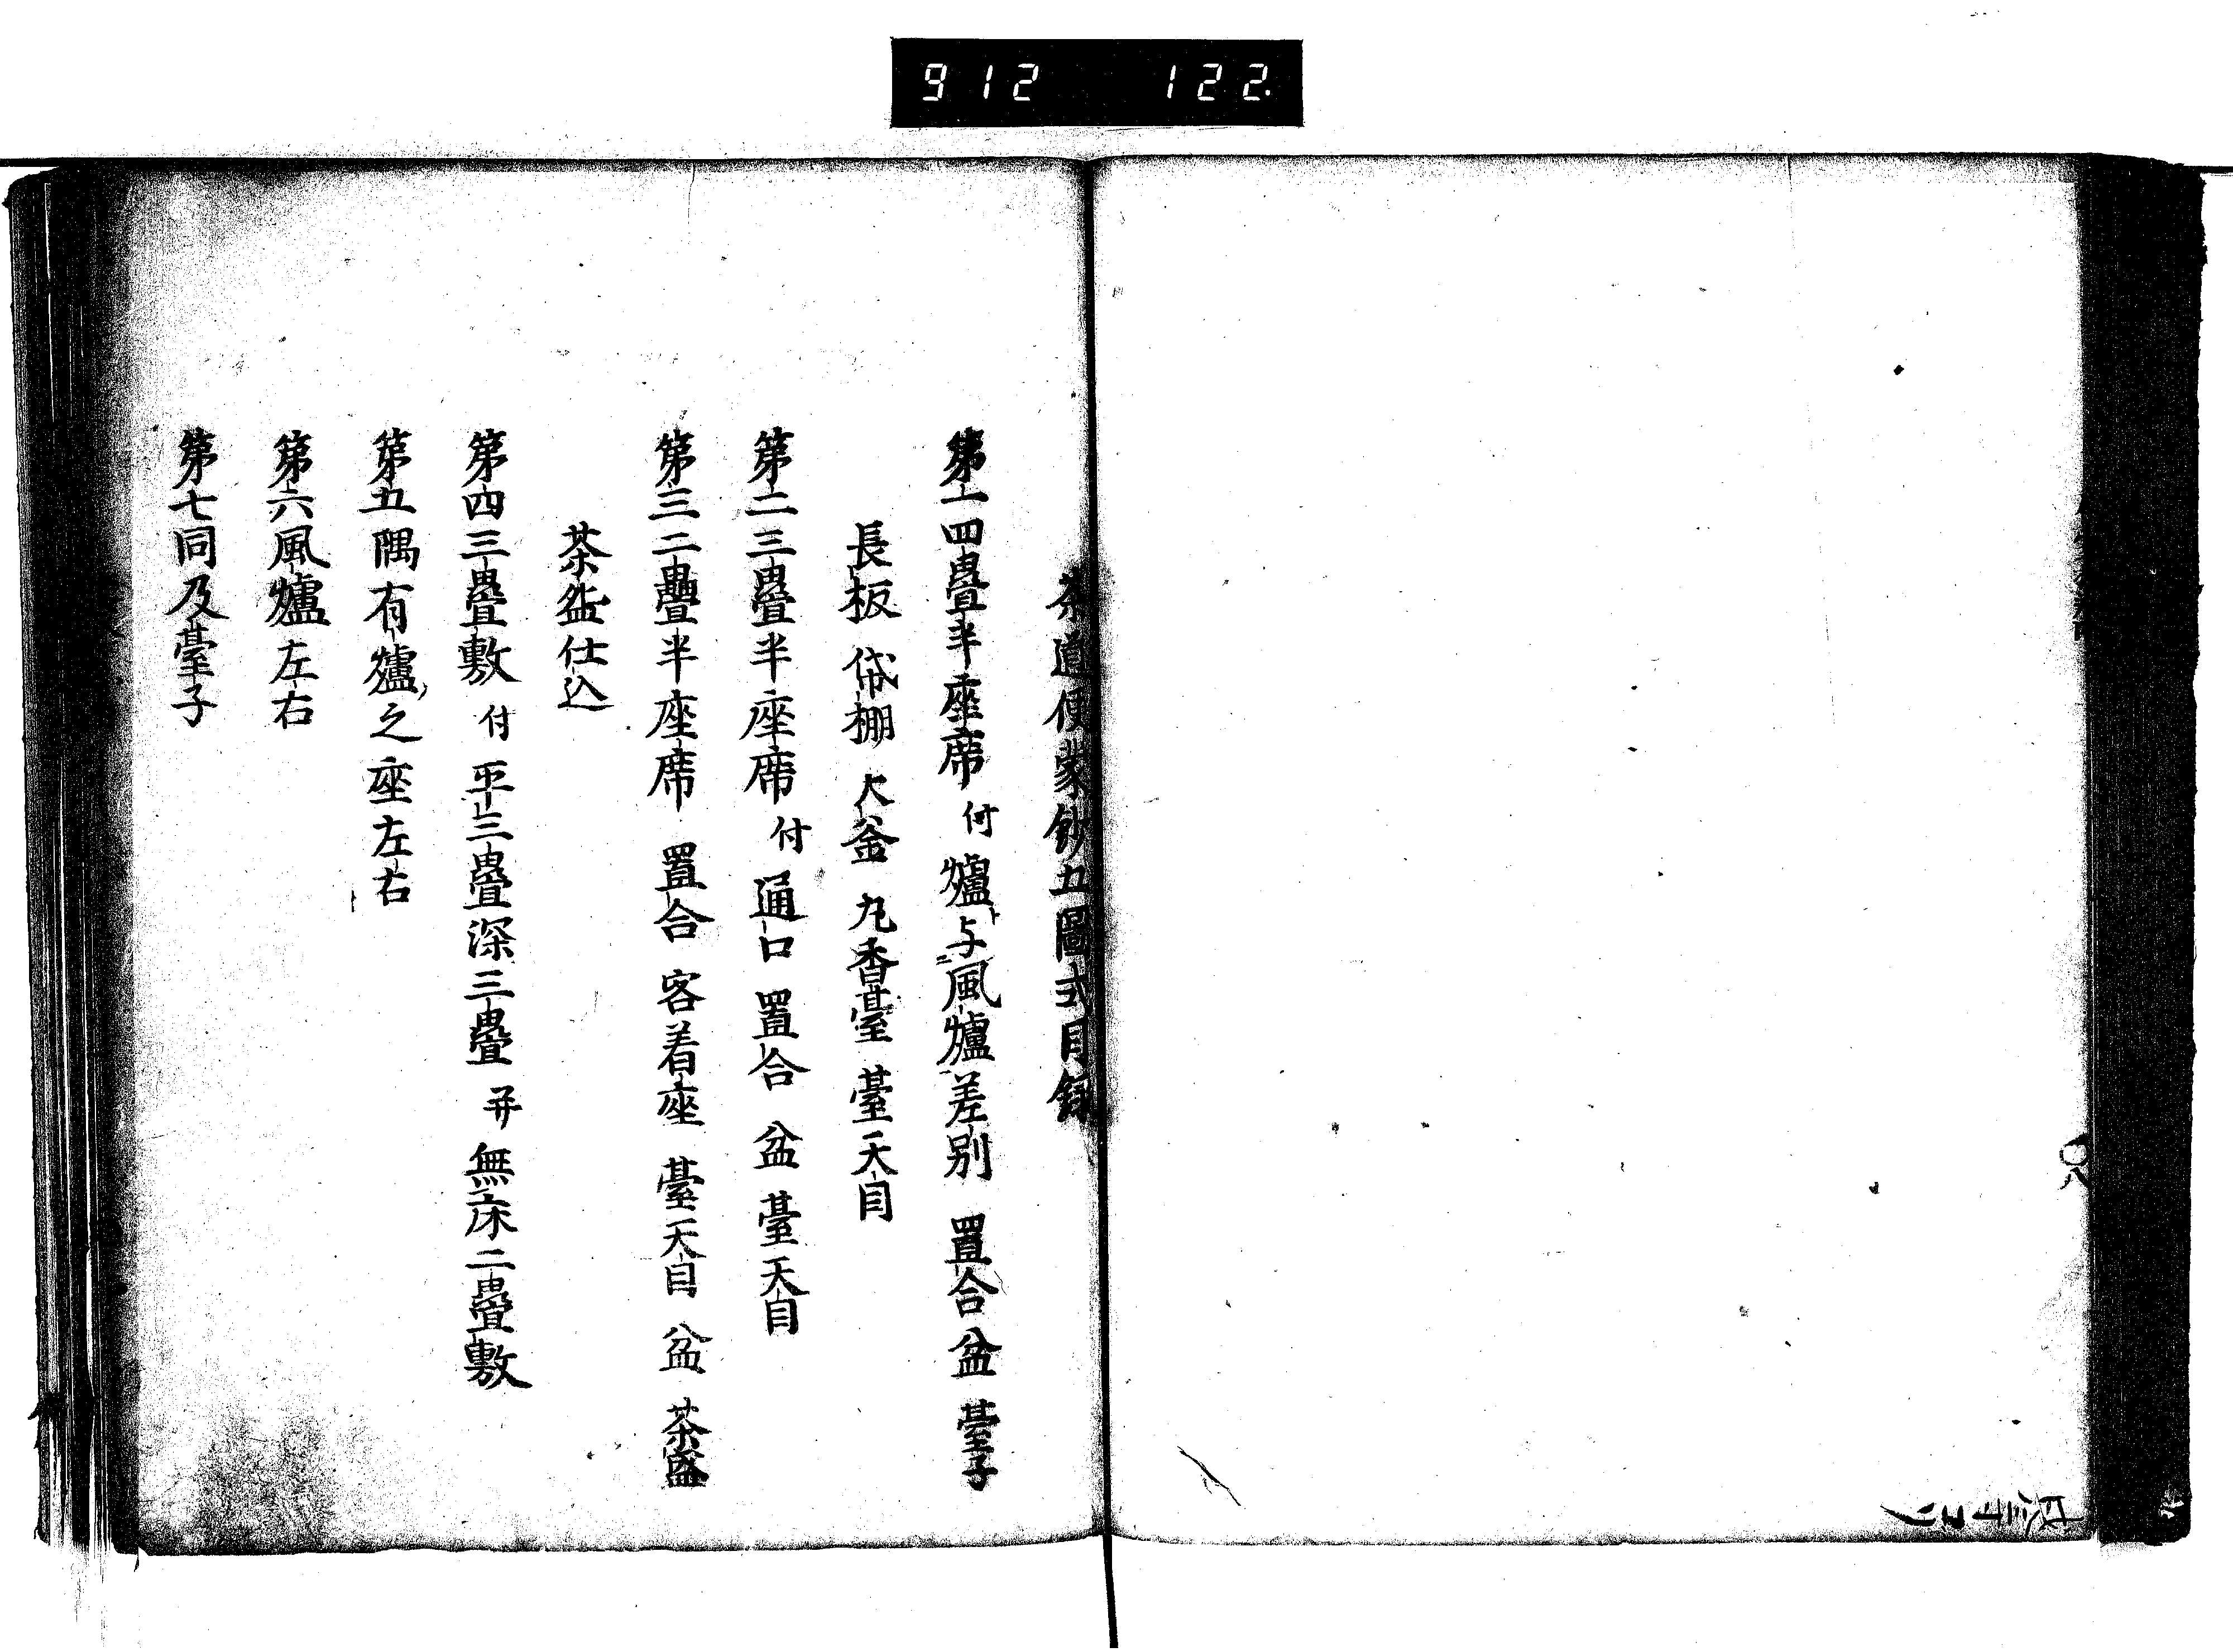 912 122.
茶道便蒙鈔五圖式目録
第一四疊半座席 付 爐ト与風爐差別 置合 盆 臺子
長板 袋棚 大釜 丸香臺 臺天目
第二三疊半座席 付 通口 置合 盆 臺天目
第三二疊半座席 置合 客着座 臺天目 盆 茶盌
茶盌仕込
第四三疊敷 付 平三疊深三疊 并 無床二疊敷
第五隅有爐之座左右
第六風爐左右
第七同及臺子